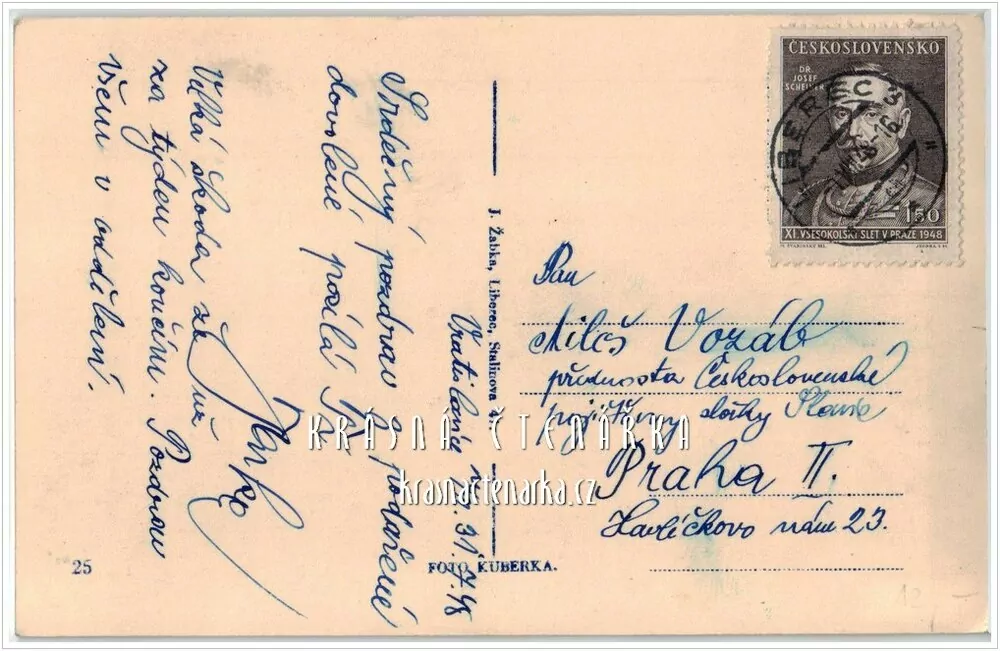 ČESKOSLOVENSKO
DR.
JOSEF
SCHEINER
1·50
XI. VŠESOKOLSKÝ SLET V PRAZE 1948
LIBEREC 3
Vratislavice n./N. 31.7.48
Srdečný pozdrav z podařené
dovolené posílá
Velká škoda že již
za týden končím. Pozdrav
všem v oddělení.
J. Žabka, Liberec, Stalinova
Pan
Miloš Vozáb
přednosta Československé
pojišťovny složky Slavie
Praha II.
Havlíčkovo nám 23.
KRÁSNÁ ČTENÁŘKA
krasnactenarka.cz
25
FOTO KUBERKA.
12